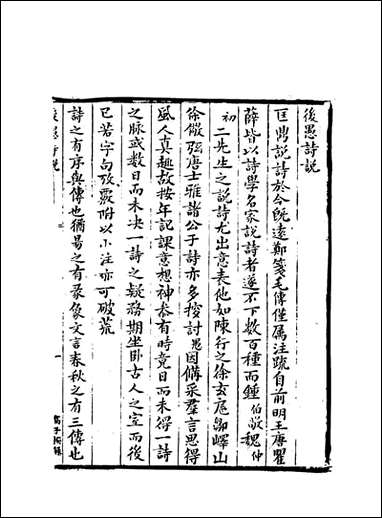 後愚詩說
匡鼎說詩於今旣遠鄭箋毛傳僅属注疏自前明王唐瞿
薛皆以詩學名家說詩者遂不下數百種而鍾伯敬魏仲
初二先生之說詩尤出意表他如陳行之徐玄扈鄒嶧山
徐儆弦唐士雅諸公子詩亦多挍討愚因備采羣言思得
風人真趣故按年記課意想神恭有時竟日而未得一詩
之脉或数日而未決一詩之疑務期坐卧古人之室而後
已若字句攷覈附以小注亦可破荒
詩之有序與傳也猶易之有彖象文言春秋之有三傳也
一